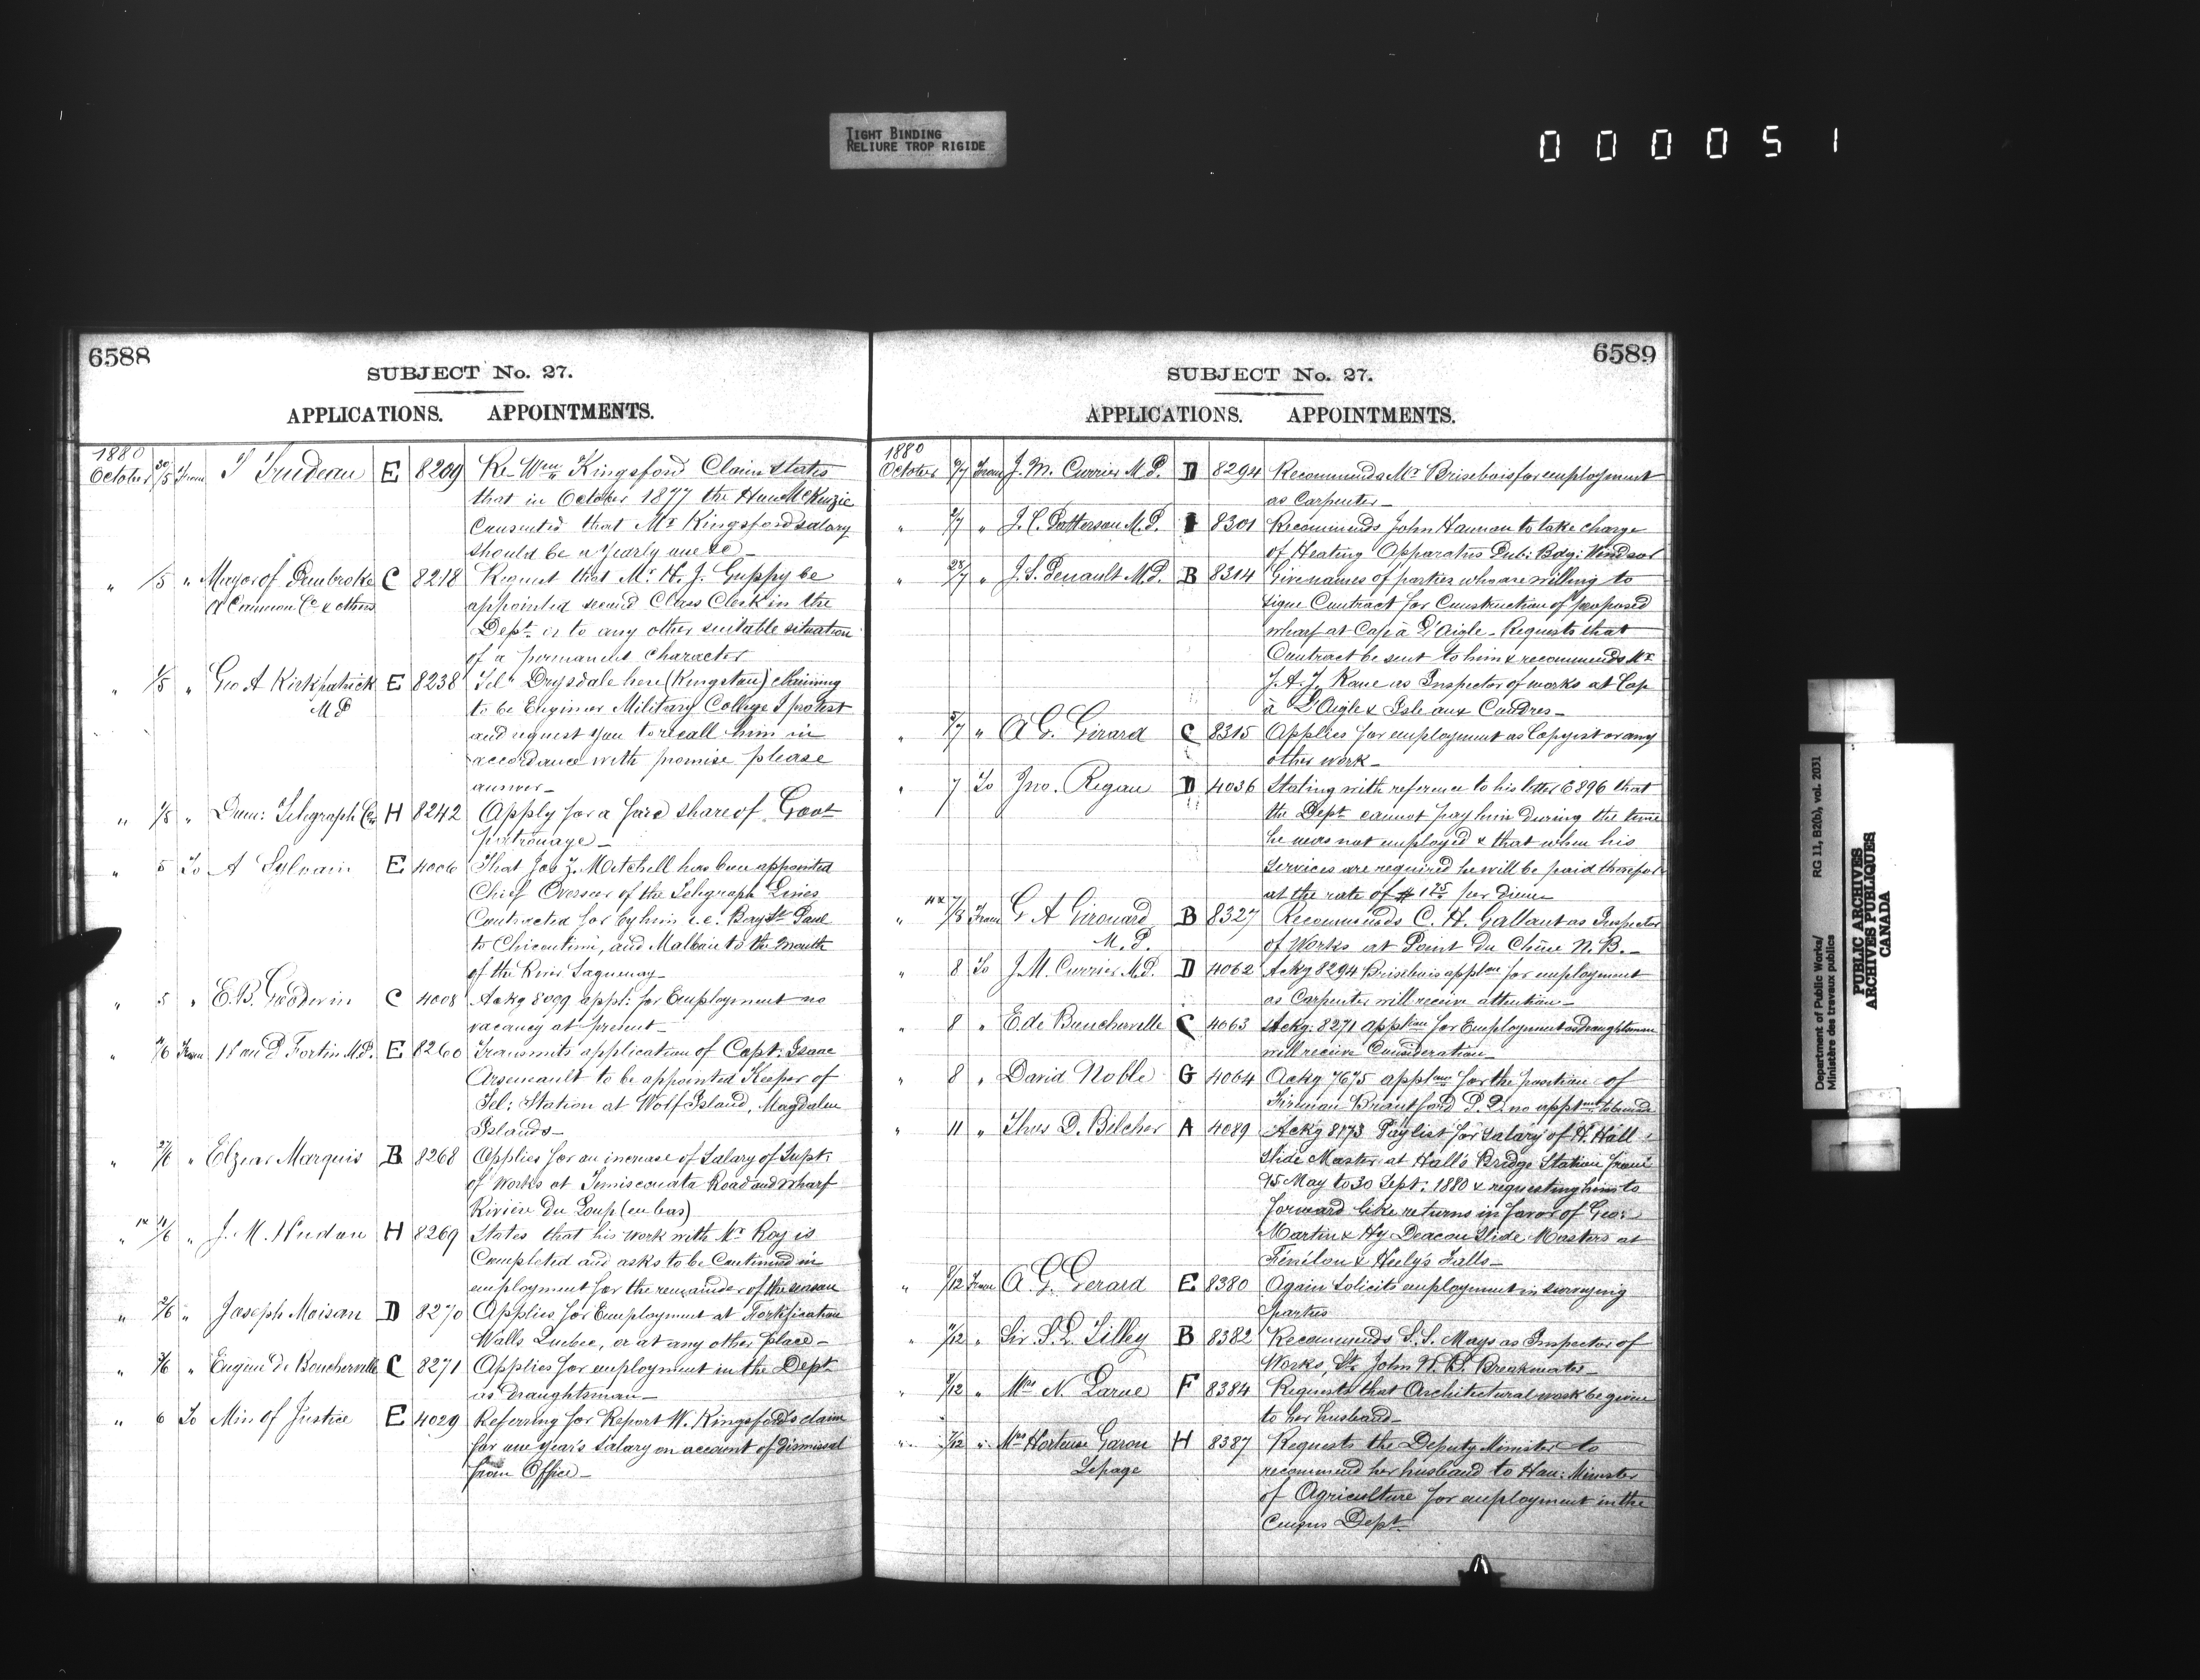 TIGHT BINDING
RELIURE TROP RIGIDE
000051
6588
SUBJECT No. 27.
APPLICATIONS. APPOINTMENTS.
1880
October 30/5 From T Trudeau E 8209 Re Wm Kingsford Claim states
that in October 1877 the Hon McKenzie
consented that Mr Kingsford salary
should be a yearly one &c
" /5 " Mayor of Pembroke C 8218 Request that Mr H. J. Guppy be
& others appointed second Class Clerk in the
Dept or to any other suitable situation
of a permanent character
" 1/5 " Geo A Kirkpatrick E 8238 Tel: Drysdale here (Kingston) claiming
M P to be Engineer Military College I protest
and request you to recall him in
accordance with promise please
answer
" 1/5 " Dom: Telegraph Co H 8242 Apply for a fair share of Govt
patronage
" 5 To A Sylvain E 4006 That Jos Z. Mitchell has been appointed
Chief Overseer of the Telegraph Lines
Contracted for by him i.e. Bay St Paul
to Chicoutimi, and Malbaie to the mouth
of the River Saguenay
" 5 " E. B. Godwin C 4008 Ackg 8099 appl: for Employment no
vacancy at present
" 4/6 From Hon P Fortin M.P. E 8260 Transmits application of Capt: Isaac
Arseneault to be appointed Keeper of
Tel: Station at Wolf Island, Magdalen
Islands
" 27/6 " Elzear Marquis B 8268 Applies for an increase of Salary of Supt:
of Works at Temiscouata Road and Wharf
Rivière Du Loup (en bas)
" /6 " J. M. Hudon H 8269 States that his work with Mr Roy is
Completed and asks to be Continued in
employment for the remainder of the season
" 2/6 " Joseph Moisan D 8270 Applies for Employment at Fortification
Walls Quebec, or at any other place
" /6 " Eugène de Boucherville C 8271 Applies for employment in the Dept
as Draughtsman
" 6 To Min of Justice E 4029 Referring for Report W. Kingsford's claim
for one year's salary on account of dismissal
from Office
6589
SUBJECT No. 27.
APPLICATIONS. APPOINTMENTS.
1880
October /7 From J. M. Currier M.P. D 8294 Recommends Mr Brisebois for employment
as Carpenter
" /7 " J. C. Patterson M.P. 8301 Recommends John Hannan to take charge
of Heating Apparatus Pub: Bdg: Windsor
" 28/7 " J. S. Perrault M.P. B 8314 Gives names of parties who are willing to
sign Contract for Construction of proposed
wharf at Cap à L'Aigle. Requests that
Contract be sent to him & recommends Mr
J. A. J. Kane as Inspector of works at Cap
à L'Aigle & Isle aux Coudres
" 5/7 " A G. Girard C 8315 Applies for employment as Copyist or any
other work
" 7 To Jno. Regan D 4036 Stating with reference to his letter 6896 that
the Dept cannot pay him during the time
he was not employed & that when his
services are required he will be paid therefor
at the rate of $1.75 per diem
" /8 From G A Girouard B 8327 Recommends C. H. Gallant as Inspector
M. P. of Works at Point Du Chêne N. B.
" 8 To J. M. Currier M.P. D 4062 Ackg 8294 Brisebois applon for employment
as Carpenter will receive attention
" 8 " E de Boucherville C 4063 Ackg: 8271 application for Employment as Draughtsman
will receive Consideration
" 8 " David Noble G 4064 Ackg 7675 applon for the position of
Fireman Brantford P. O. no apptmt to be made
" 11 " Thos D. Belcher A 4089 Ackg 8173 Paylist for salary of H. Hall
Slide Master at Hall's Bridge Station from
15 May to 30 Sept: 1880 & requesting him to
forward like returns in favor of Geo:
Martin & Hy Deacon Slide Masters at
Fénélon & Heely's Falls
" 8/12 From A. G. Gerard E 8380 Again solicits employment in surveying
parties
" /12 " Sir S. L. Tilley B 8382 Recommends S. S. Mays as Inspector of
Works, St. John N. B. Breakwater
" 9/12 " Mrs N. Larue F 8384 Requests that Architectural work be given
to her husband
" /12 " Mrs Hortense Garon H 8387 Requests the Deputy Minister to
Lepage recommend her husband to Hon: Minister
of Agriculture for employment in the
Census Dept
Department of Public Works/ RG 11, B2(b), vol. 2031
Ministère des travaux publics
PUBLIC ARCHIVES
ARCHIVES PUBLIQUES
CANADA